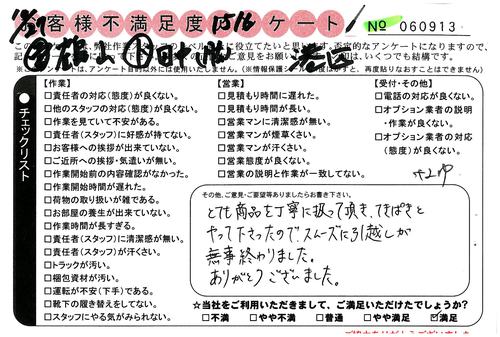 お客様不満足度アンケート
15/6
No 060913
チェックリスト
【作業】
□責任者の対応(態度)が良くない。
□他のスタッフの対応(態度)が良くない。
□作業を見ていて不安がある。
□責任者(スタッフ)に好感が持てない。
□お客様への挨拶が出来ていない。
□ご近所への挨拶・気遣いが無い。
□作業開始前の内容確認がなかった。
□作業開始時間が遅れた。
□荷物の取り扱いが雑である。
□お部屋の養生が出来ていない。
□作業時間が長すぎる。
□責任者(スタッフ)に清潔感が無い。
□責任者(スタッフ)が汗くさい。
□トラックが汚い。
□梱包資材が汚い。
□運転が不安(下手)である。
□靴下の履き替えをしてない。
□スタッフにやる気がみられない。
【営業】
□見積もり時間に遅れた。
□見積もり時間が長い。
□営業マンに清潔感が無い。
□営業マンが煙草くさい。
□営業マンが汗くさい。
□営業態度が良くない。
□営業の説明と作業が一致してない。
【受付・その他】
□電話の対応が良くない。
□オプション業者の説明
・作業が良くない。
□オプション業者の対応
(態度)が良くない。
その他、ご意見・ご要望等ありましたらお書き下さい。
とても商品を丁寧に扱って頂き、てきぱきと
やって下さったのでスムーズに引越しが
無事終わりました。
ありがとうございました。
☆当社をご利用いただきまして、ご満足いただけたでしょうか?
□不満 □やや不満 □普通 □やや満足 ☑満足